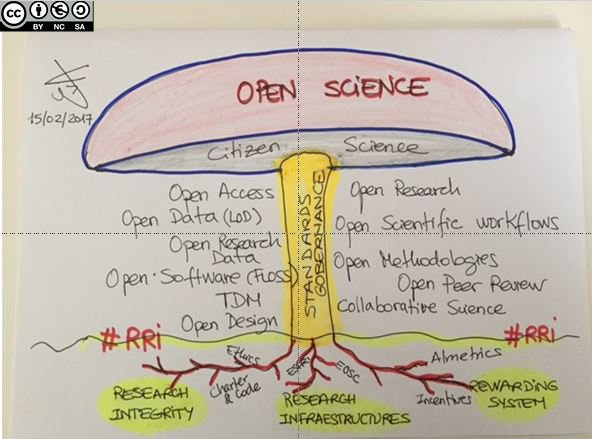 cc
BY NC SA
15/02/2017
OPEN SCIENCE
Citizen Science
STANDARDS
GOBERNANCE
Open Access
Open Data (LOD)
Open Research
Data
Open Software (FLOSS)
TDM
Open Design
Open Research
Open Scientific workflows
Open Methodologies
Open Peer Review
Collaborative Science
#RRi
#RRi
Ethics
Charter
& Code
ESFRI
EOSC
Almetrics
Incentives
RESEARCH
INTEGRITY
RESEARCH
INFRAESTRUCTURES
REWARDING
SYSTEM